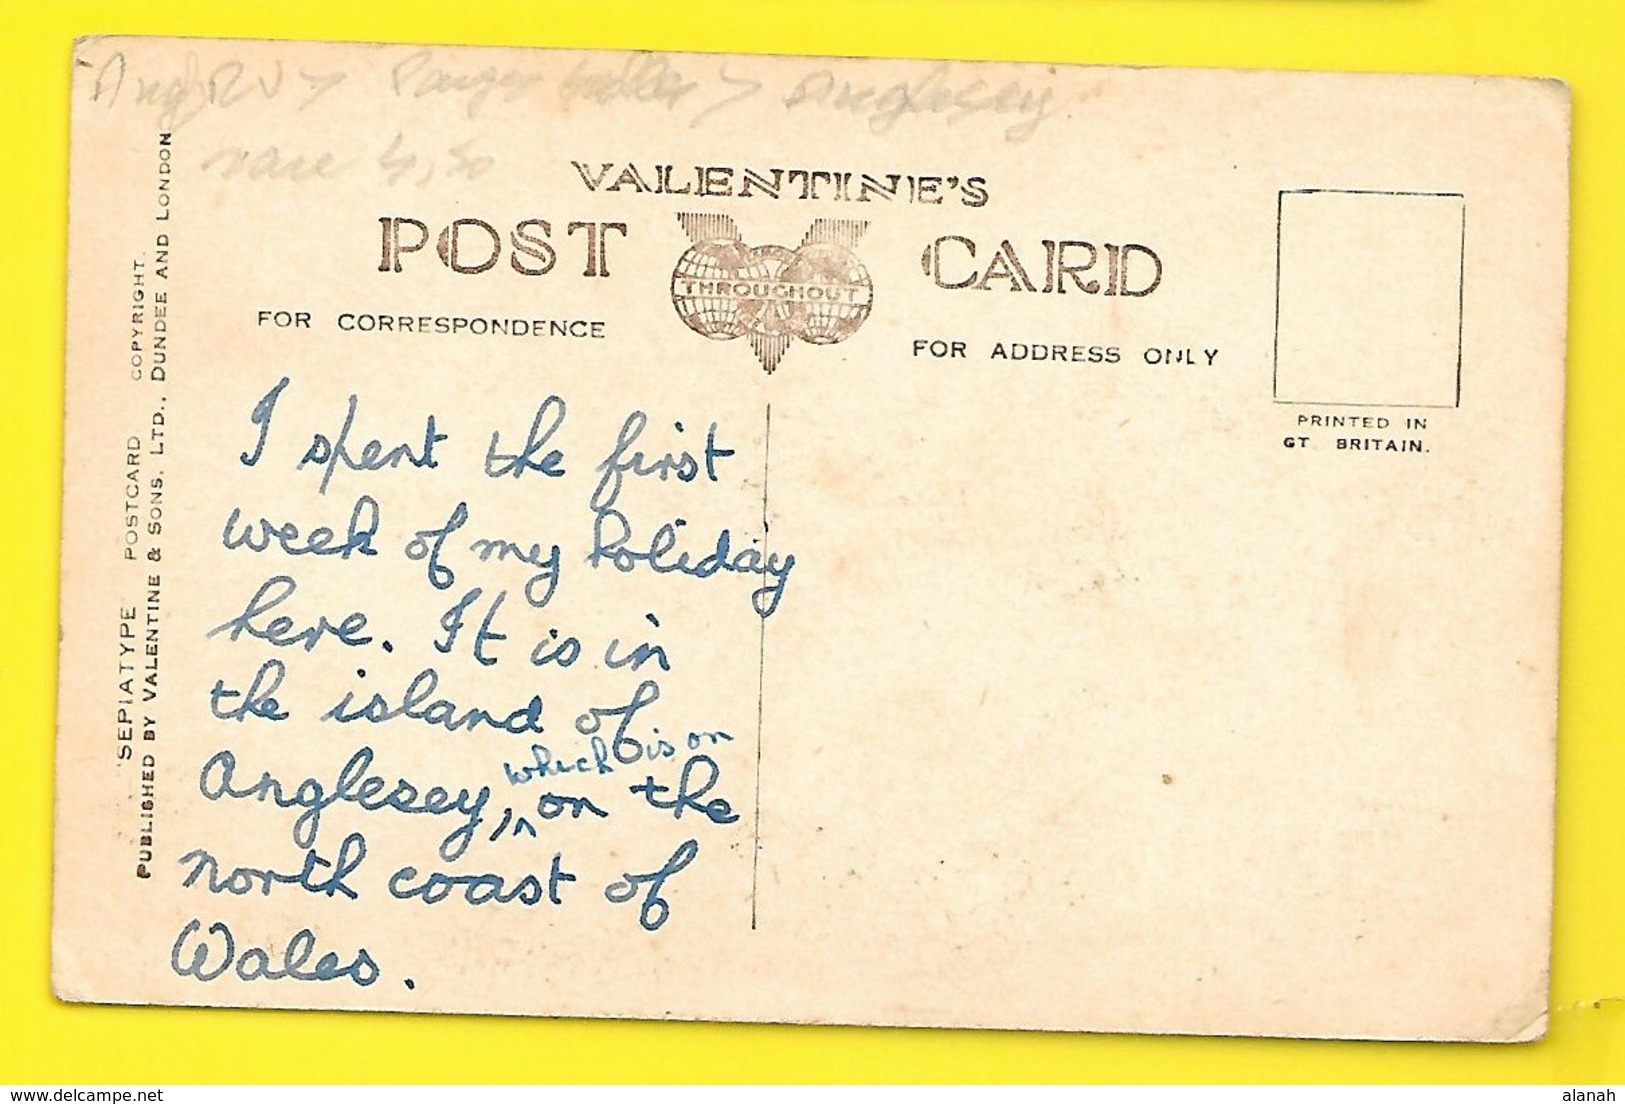 Anglesey
rare 4,50
VALENTINE'S
POST CARD
THROUGHOUT
FOR CORRESPONDENCE
FOR ADDRESS ONLY
PRINTED IN
GT. BRITAIN.
"SEPIATYPE" POSTCARD COPYRIGHT.
PUBLISHED BY VALENTINE & SONS. LTD., DUNDEE AND LONDON
I spent the first
week of my holiday
here. It is in
the island of
which is on
Anglesey, on the
north coast of
Wales.
delcampe.net
alanah